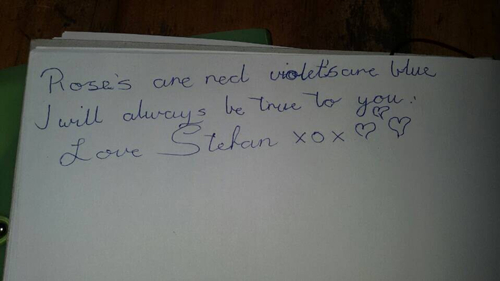 Rose's are red violet's are blue
I will always be true to you:
Love Stefan xox